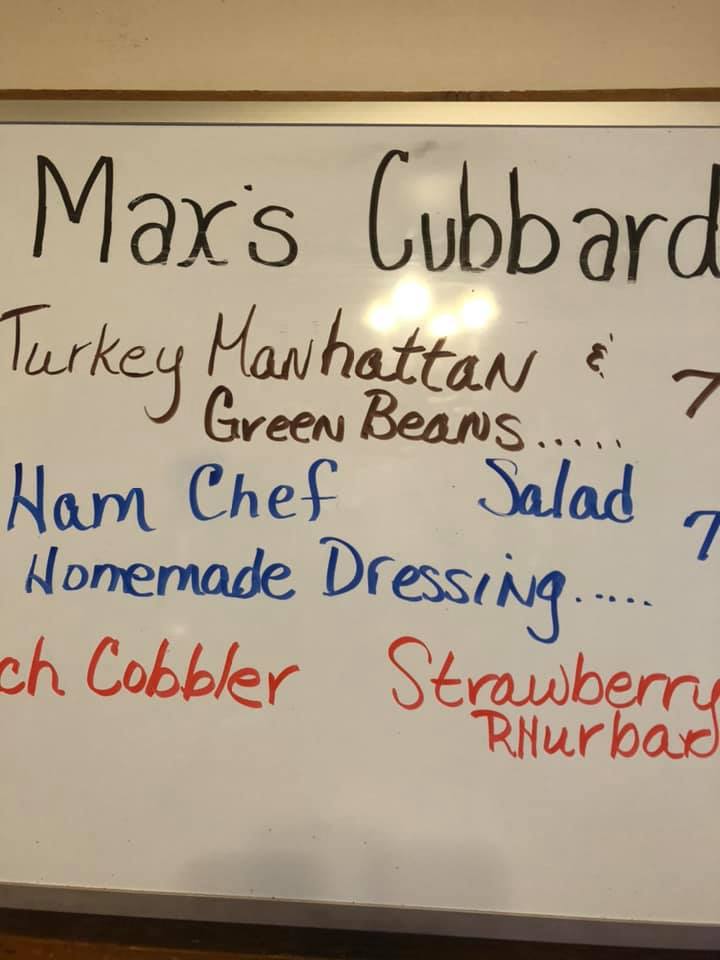 Max's Cubbard
Turkey Manhattan & 7
Green Beans.....
Ham Chef Salad 7
Homemade Dressing.....
ch Cobbler Strawberry
RHurbar